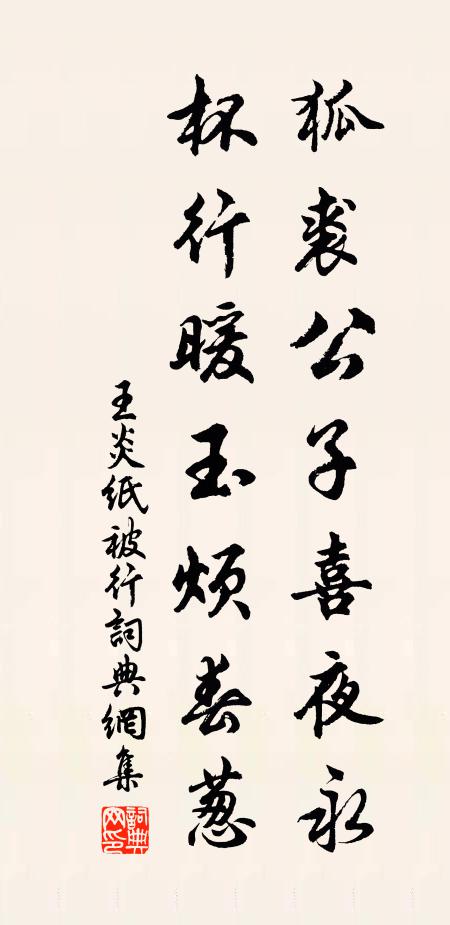 狐裘公子喜夜永
杯行暖玉烦春葱
王炎纸被行詞典網集
詞典网印